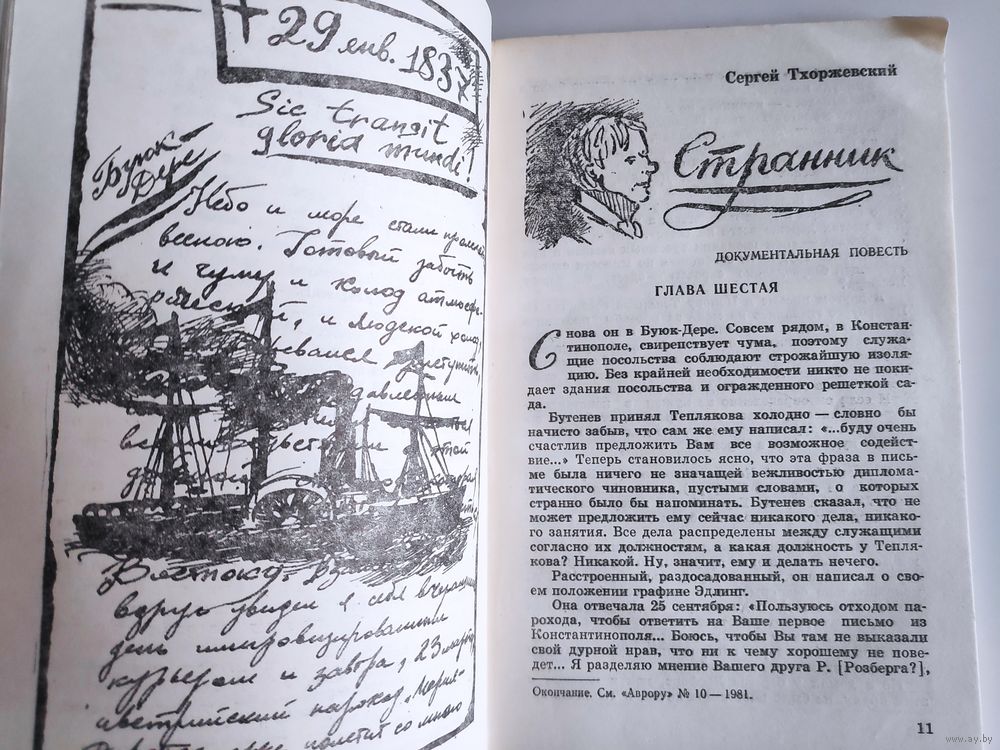 + 29 янв. 1837
Sic transit
gloria mundi!
Буюк-
Дере
Небо и море стали
весною. Готовый забыть
и чуму и холод атмосфер-
и людской холод,
Востоку.
вдруг увидел я себя вчерашний
день импровизированным
курьером и завтра, 23 марта,
австрийский пароход „Мария-
полетит со мною
Сергей Тхоржевский
Странник
ДОКУМЕНТАЛЬНАЯ ПОВЕСТЬ
ГЛАВА ШЕСТАЯ
Снова он в Буюк-Дере. Совсем рядом, в Констан-
тинополе, свирепствует чума, поэтому служа-
щие посольства соблюдают строжайшую изоля-
цию. Без крайней необходимости никто не поки-
дает здания посольства и огражденного решеткой са-
да.
Бутенев принял Теплякова холодно — словно бы
начисто забыв, что сам же ему написал: «...буду очень
счастлив предложить Вам все возможное содейст-
вие...» Теперь становилось ясно, что эта фраза в пись-
ме была ничего не значащей вежливостью диплома-
тического чиновника, пустыми словами, о которых
странно было бы напоминать. Бутенев сказал, что не
может предложить ему сейчас никакого дела, никако-
го занятия. Все дела распределены между служащими
согласно их должностям, а какая должность у Тепля-
кова? Никакой. Ну, значит, ему и делать нечего.
Расстроенный, раздосадованный, он написал о сво-
ем положении графине Эдлинг.
Она отвечала 25 сентября: «Пользуюсь отходом па-
рохода, чтобы ответить на Ваше первое письмо из
Константинополя... Боюсь, чтобы Вы там не выказали
свой дурной нрав, что ни к чему хорошему не пове-
дет... Я разделяю мнение Вашего друга Р. [Розберга?],
Окончание. См. «Аврору» № 10 — 1981.
11
www.ay.by